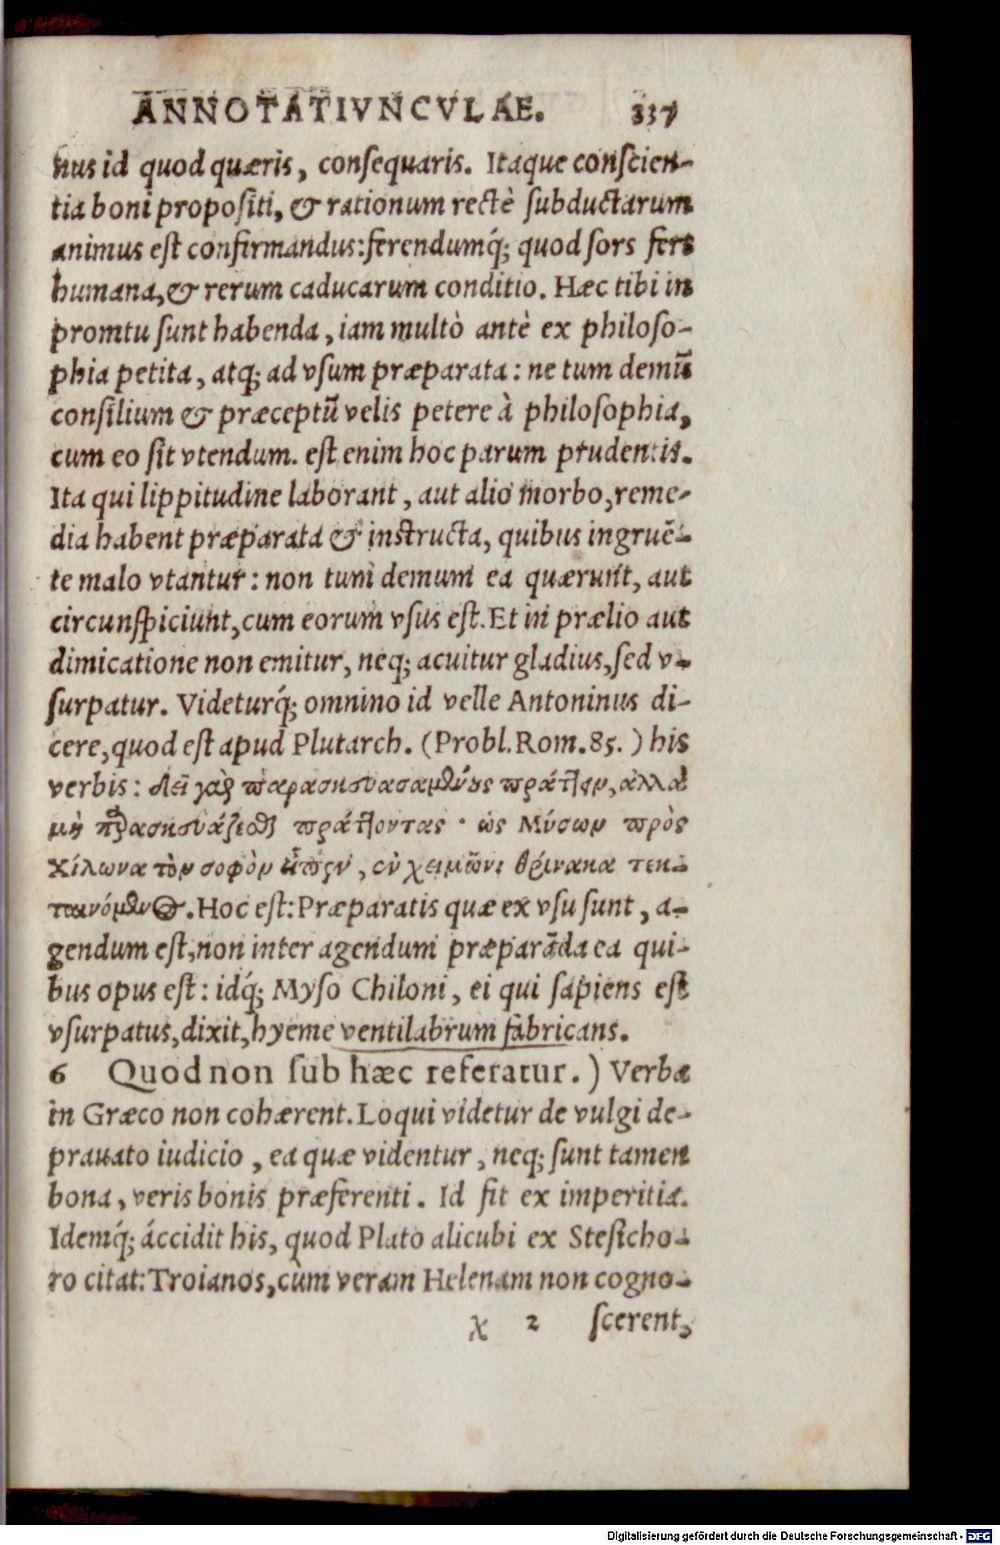 ANNOTATIVNCVLAE. 337
nus id quod quæris, consequaris. Itaque conscien-
tia boni propositi, & rationum rectè subductarum
animus est confirmandus: ferendumq́; quod sors fert
humana, & rerum caducarum conditio. Hæc tibi in
promtu sunt habenda, iam multò antè ex philoso-
phia petita, atq; ad vsum præparata: ne tum demũ
consilium & præceptũ velis petere à philosophia,
cum eo sit vtendum. est enim hoc parum prudentis.
Ita qui lippitudine laborant, aut alio morbo, reme-
dia habent præparata & instructa, quibus ingruẽ-
te malo vtantur: non tum demum ea quærunt, aut
circunspiciunt, cum eorum vsus est. Et in prælio aut
dimicatione non emitur, neq; acuitur gladius, sed v-
surpatur. Videturq́; omnino id velle Antoninus di-
cere, quod est apud Plutarch. (Probl. Rom. 85.) his
verbis: Δεῖ γὰρ παρασκευασαμένους πράττειν, ἀλλὰ
μὴ παρασκευάζεσθαι πράττοντας· ὡς Μύσων πρὸς
Χίλωνα τὸν σοφὸν εἶπεν, ἐν χειμῶνι θρίνακα τεκ-
ταινόμενος. Hoc est: Præparatis quæ ex vsu sunt, a-
gendum est, non inter agendum præparãda ea qui-
bus opus est: idq́; Myso Chiloni, ei qui sapiens est
vsurpatus, dixit, hyeme ventilabrum fabricans.
6 Quod non sub hæc referatur.) Verba
in Græco non cohærent. Loqui videtur de vulgi de-
prauato iudicio, ea quæ videntur, neq; sunt tamen
bona, veris bonis præferenti. Id fit ex imperitia.
Idemq́; áccidit his, quod Plato alicubi ex Stesicho-
ro citat: Troianos, cùm veram Helenam non cogno-
χ 2 scerent,
Digitalisierung gefördert durch die Deutsche Forschungsgemeinschaft - DFG